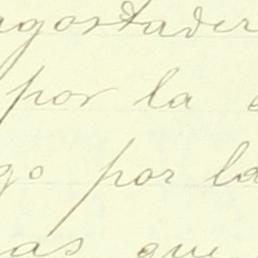 agostader
por la
go por la
as que